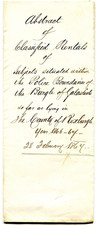 Abstract
of
Classified Rentals
of
Subjects situated within
the Police Boundaries of
the Burgh of Galashiels
so far as lying in
The County of Roxburgh
Year 1866-67.
28 February 1867.